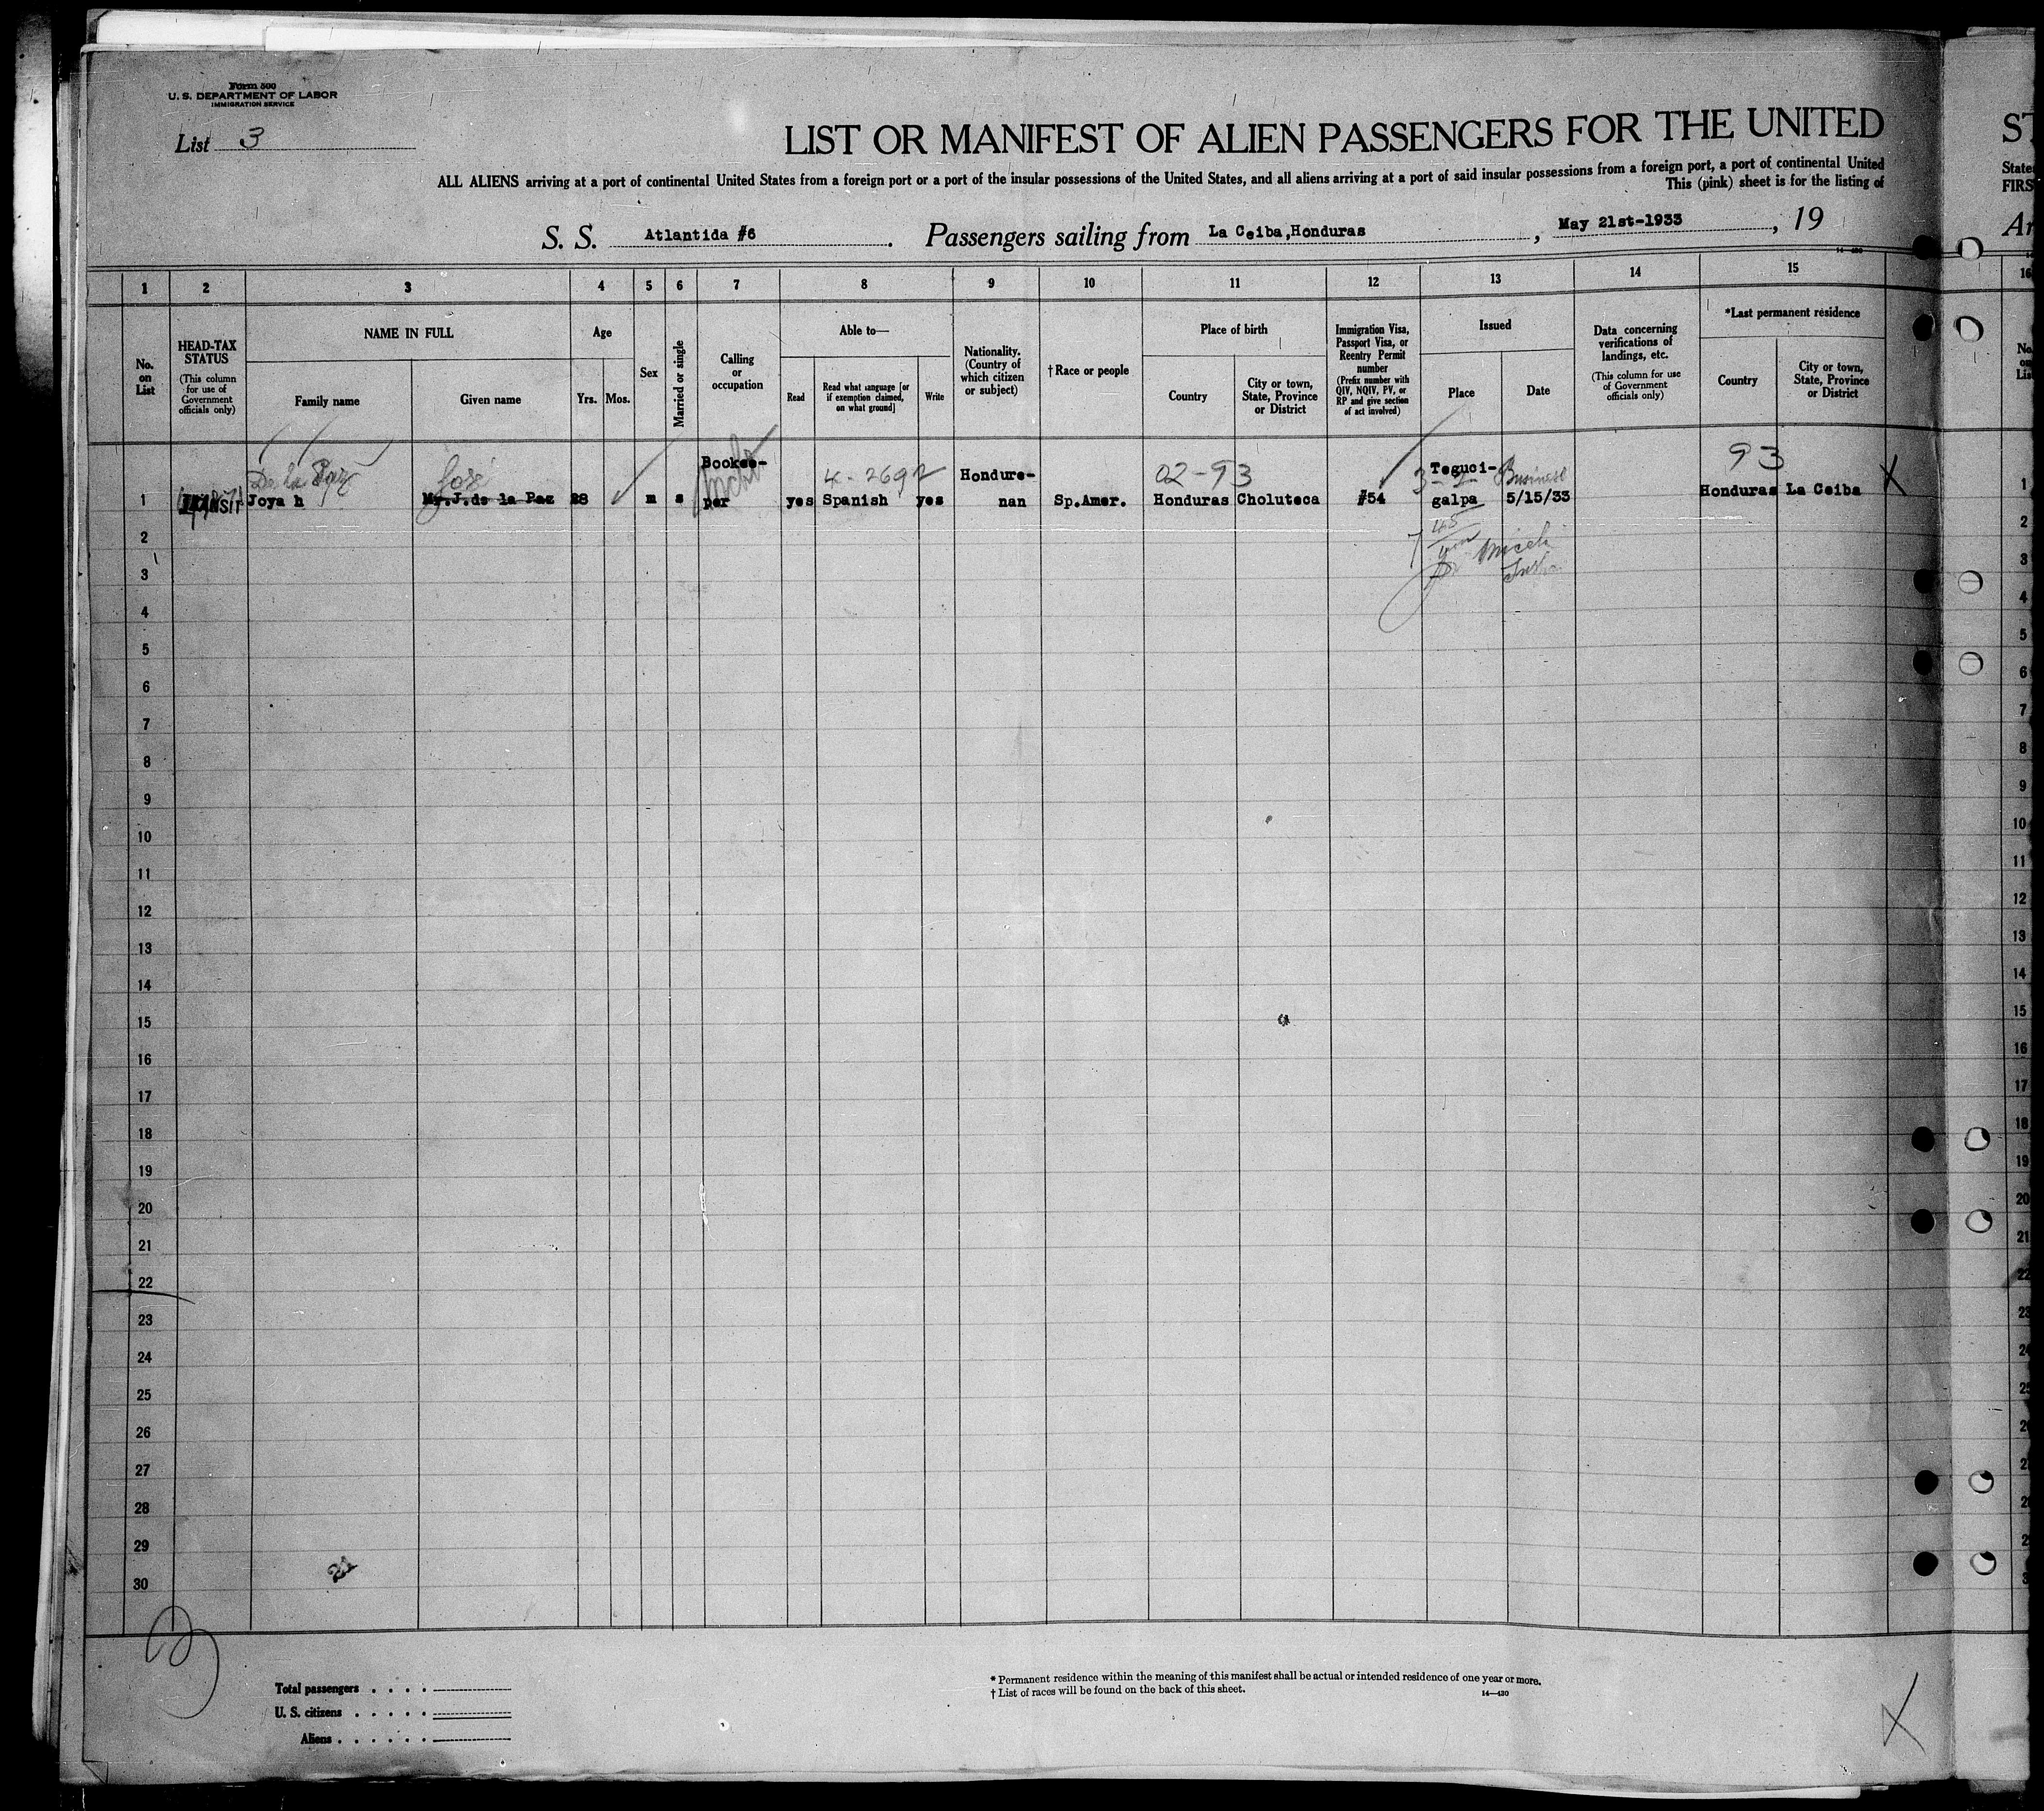 Form 500
U. S. DEPARTMENT OF LABOR
IMMIGRATION SERVICE
List 3
LIST OR MANIFEST OF ALIEN PASSENGERS FOR THE UNITED
ST
ALL ALIENS arriving at a port of continental United States from a foreign port or a port of the insular possessions of the United States, and all aliens arriving at a port of said insular possessions from a foreign port, a port of continental United
State
This (pink) sheet is for the listing of
FIRS
S. S. Atlantida #6 . Passengers sailing from La Ceiba,Honduras , May 21st-1933 , 19
Ar
14—430
1 2 3 4 5 6 7 8 9 10 11 12 13 14 15
16
No. on List
HEAD-TAX STATUS
(This column for use of Government officials only)
NAME IN FULL
Family name
Given name
Age
Yrs.
Mos.
Sex
Married or single
Calling or occupation
Able to—
Read
Read what language [or if exemption claimed, on what ground]
Write
Nationality. (Country of which citizen or subject)
† Race or people
Place of birth
Country
City or town, State, Province or District
Immigration Visa, Passport Visa, or Reentry Permit number
(Prefix number with QIV, NQIV, PV, or RP and give section of act involved)
Issued
Place
Date
Data concerning verifications of landings, etc.
(This column for use of Government officials only)
*Last permanent residence
Country
City or town, State, Province or District
No. on List
De la Paz José 4-2692 02-93 3-2 Business 93
Bookee- Hondure- Teguci-
1 TRANSIT Joya h My.J.de la Paz 28 m s per yes Spanish yes nan Sp.Amer. Honduras Choluteca #54 galpa 5/15/33 Honduras La Ceiba X 1
2 2
3 3
4 4
5 5
6 6
7 7
8 8
9 9
10 10
11 11
12 12
13 13
14 14
15 15
16 16
17 17
18 18
19 19
20 20
21 21
22 22
23 23
24 24
25 25
26
27
28
29
30
Total passengers
U. S. citizens
Aliens
* Permanent residence within the meaning of this manifest shall be actual or intended residence of one year or more.
† List of races will be found on the back of this sheet.
14—430
X